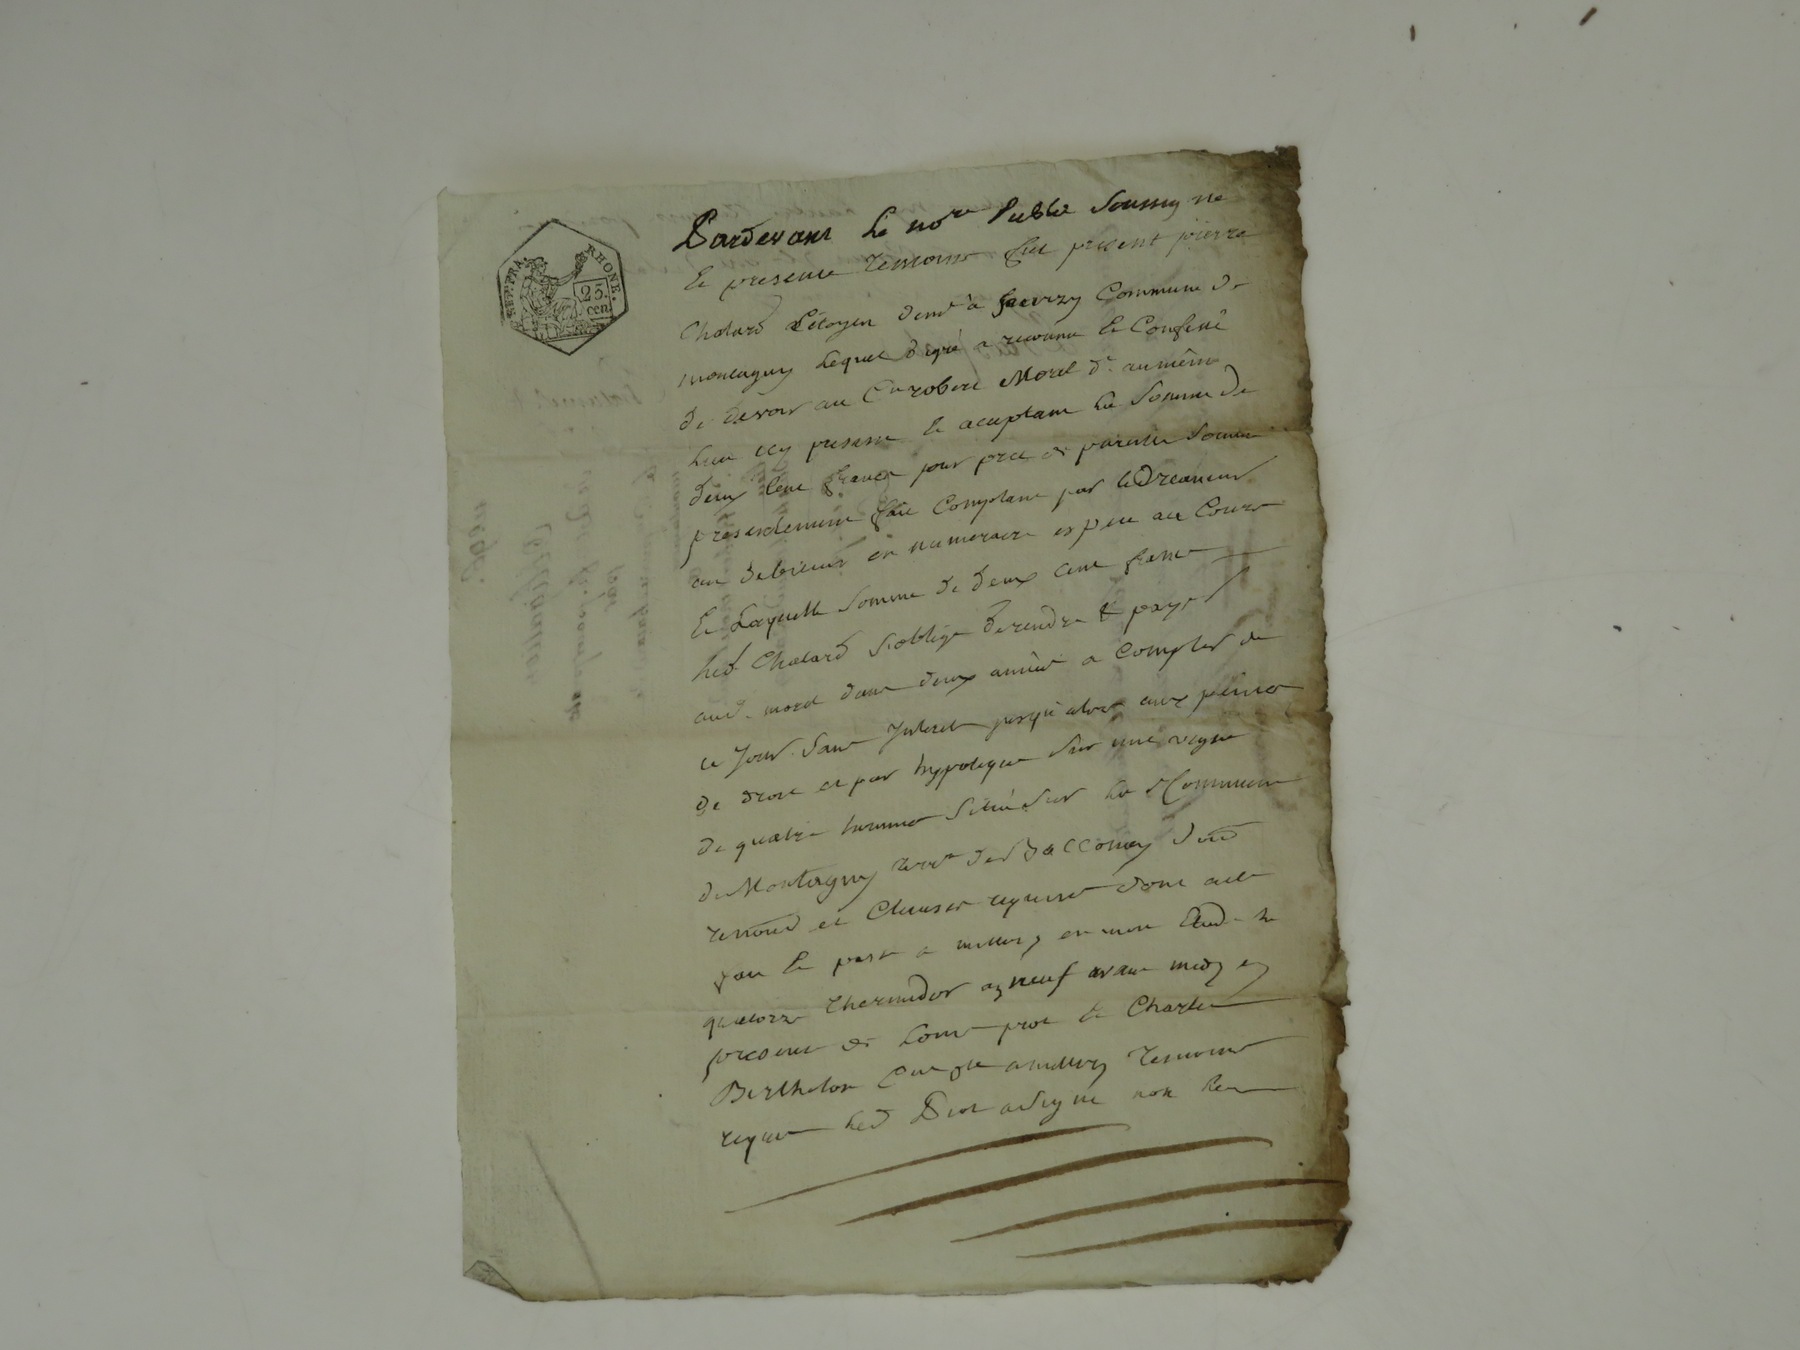 REP. FRA. RHONE.
25. cen
Pardevant Le no.re Public Soussigné
Et presents temoins fut present pierre
Chatard Citoyen dem.t à Commune de
montagny Lequel de gré a reconnu Et Confessé
de devoir au C.en robert Morel d.t au même
Lieu icy present Et aceptant La Somme de
deux Cent francs pour pret de pareille Somme
presentement fait Comptant par le Creancier
au debiteur en numeraire espece au Cours
Et Laquelle Somme de deux cent francs
Led Chatard s'oblige de rendre Et payer
aud. morel dans deux années a Compter de
ce Jour Sans Interet jusqu'alors aux peines
de droit et par hypoteque Sur une vigne
de quatre hommes Situé Sur La d Commune
de Montagny terr.e de
renoncé et Clauses requises dont acte
fait Et passé a millery en mon Etude le
quatorze thermidor an neuf avant midy en
presence de Louis prot Et Charles
Bertholon C.ens de millery temoins
requis Led Prot a Signé non Les